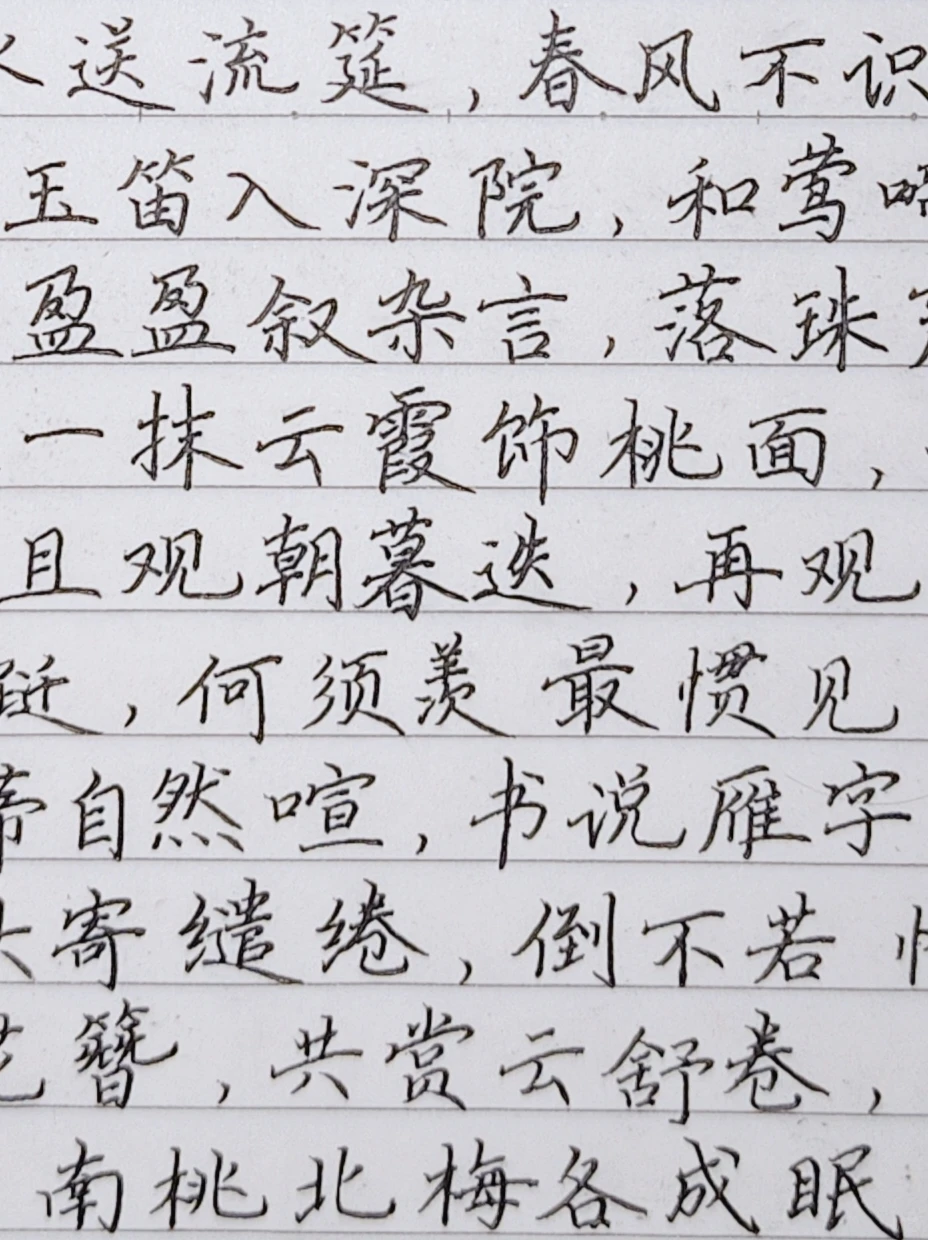 送流筵,春风不识
玉笛入深院,和莺啼
盈盈叙杂言,落珠
一抹云霞饰桃面,
且观朝暮迭,再观
跹,何须羡最惯见
蒂自然喧,书说雁字
寄缱绻,倒不若
花簪,共赏云舒卷,
南桃北梅各成眠